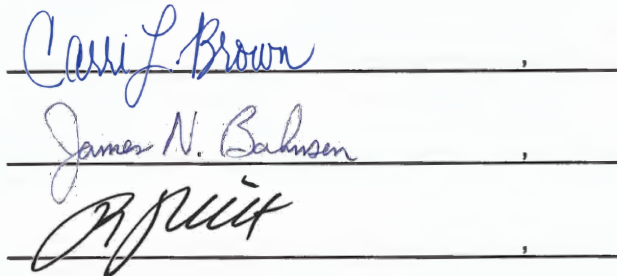 Carri L. Brown ,
James N. Bahnsen ,
,